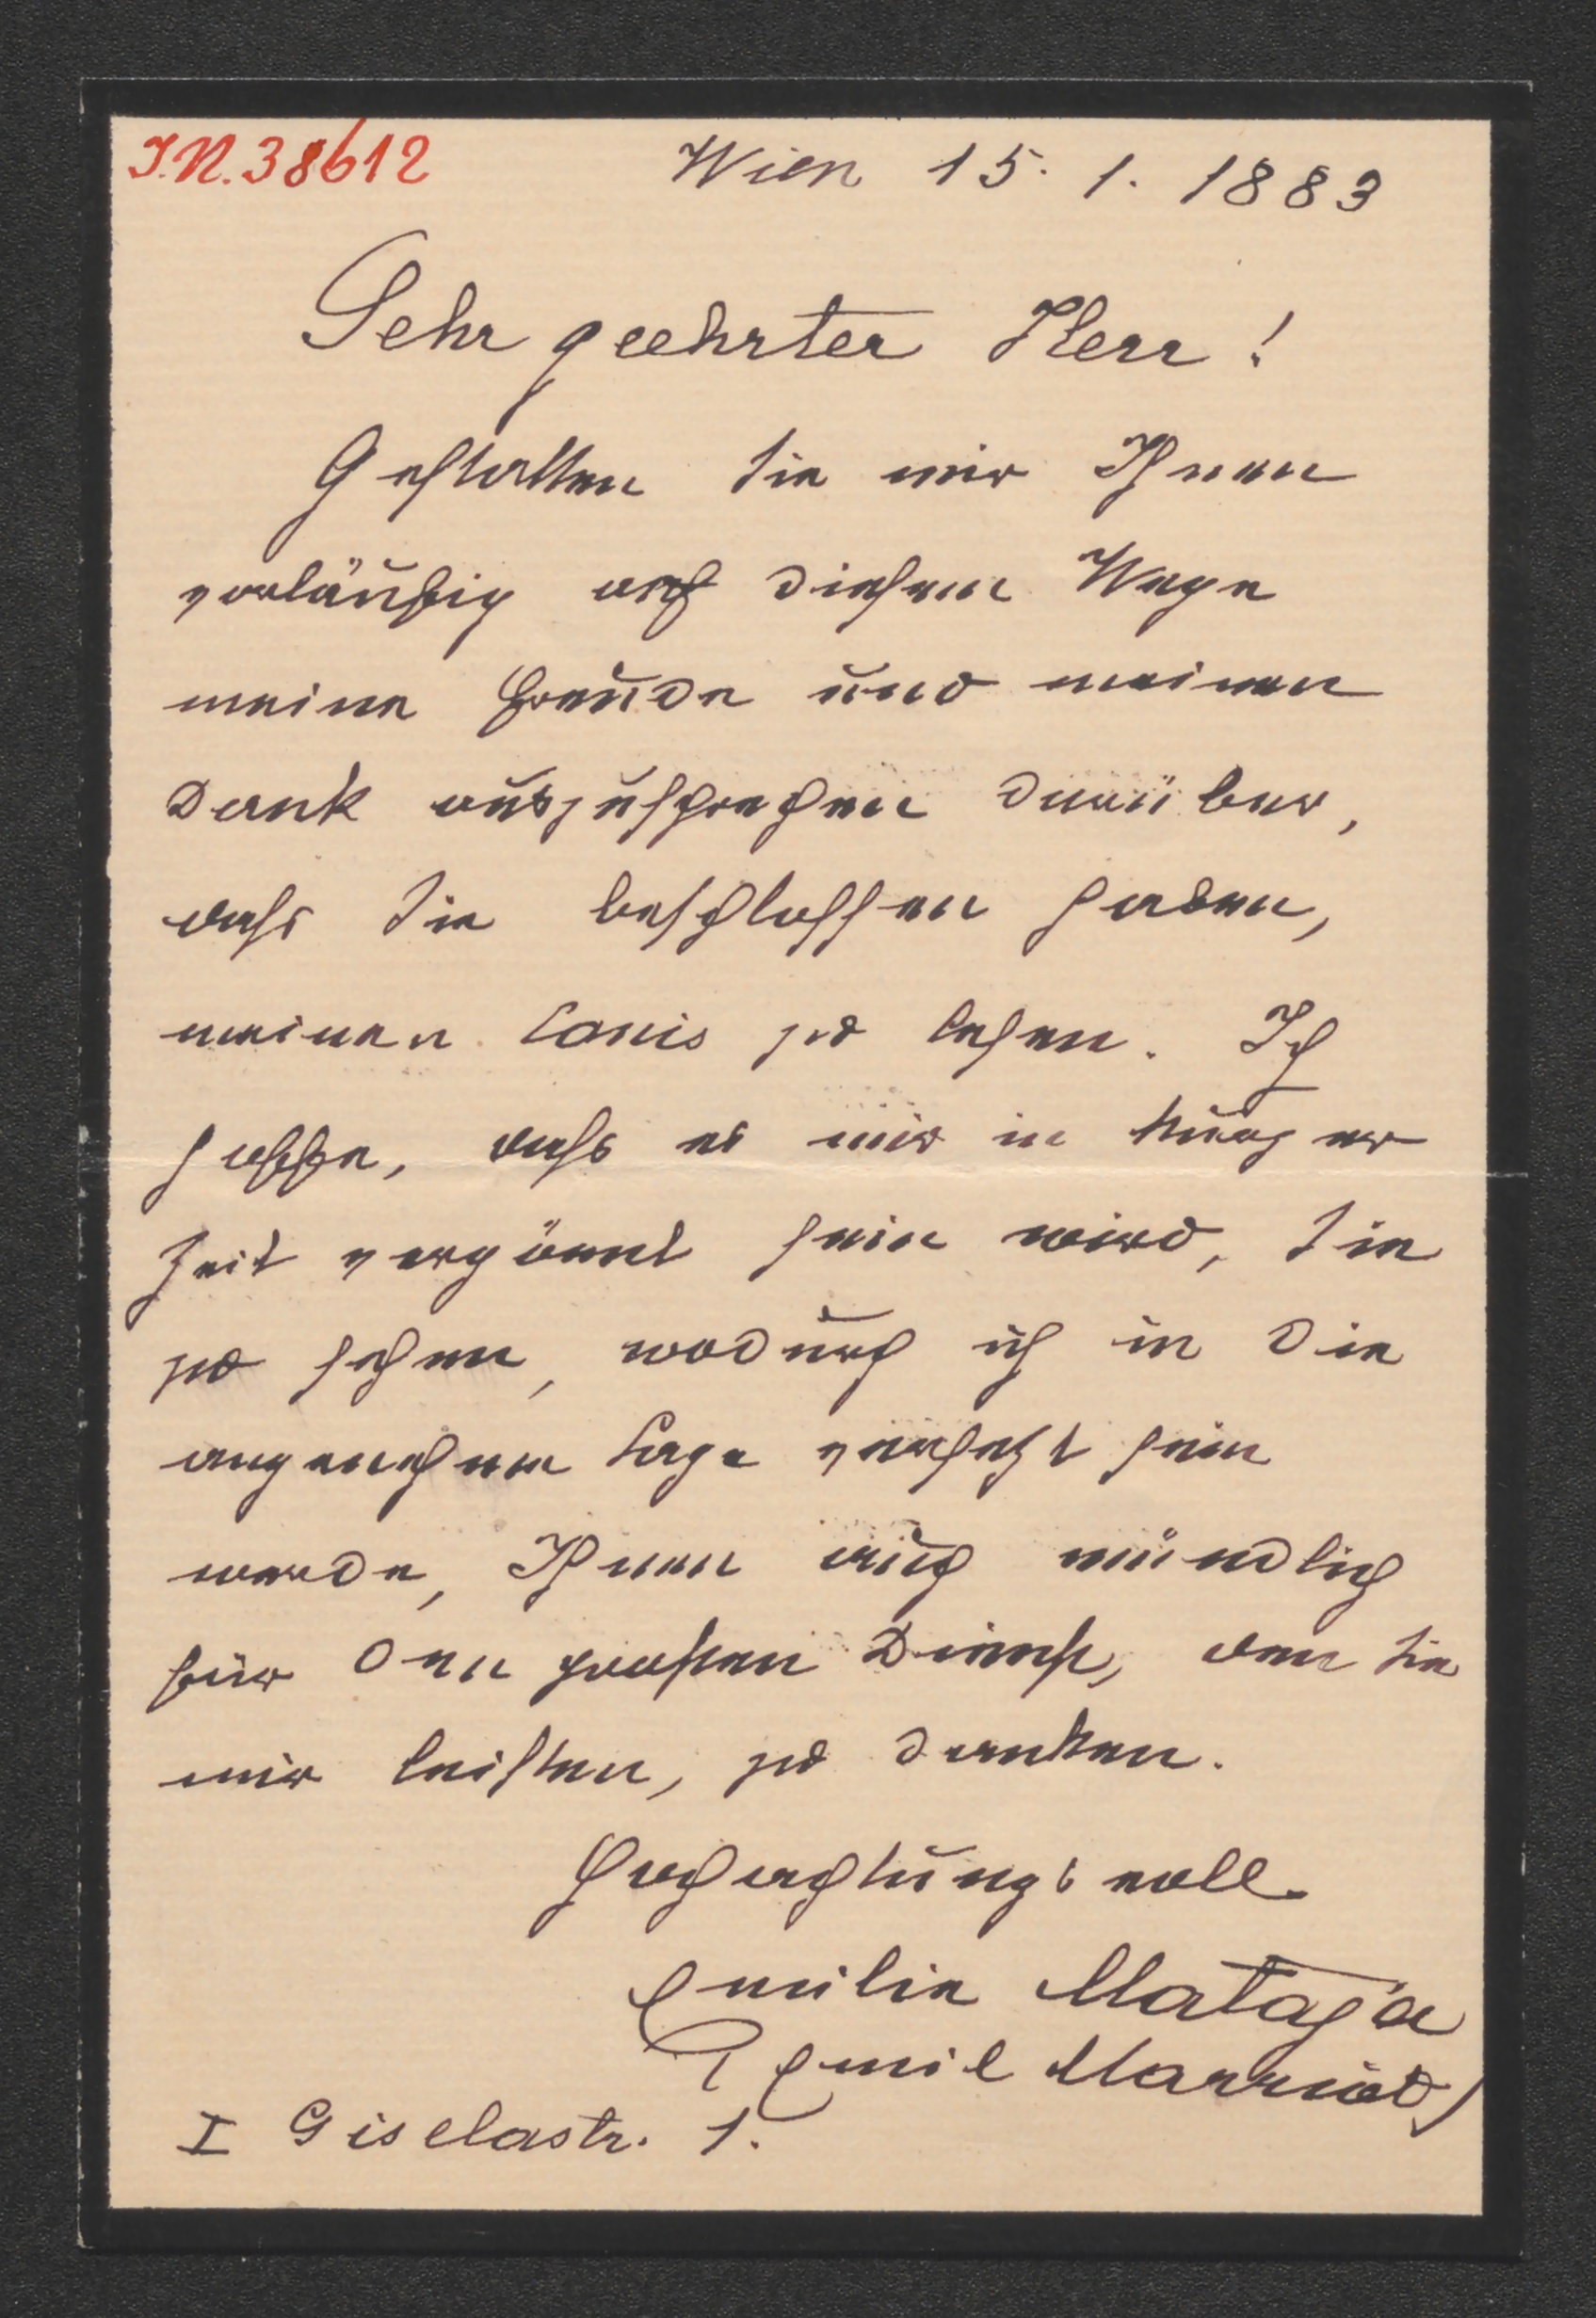 I.N. 38612
Wien 15. 1. 1883
Sehr geehrter Herr!
Gestatten Sie mir Ihnen
vorläufig auf diesem Wege
meine Freude und meinen
Dank auszusprechen darüber,
dass Sie beschlossen haben,
meinen Conis zu lesen. Ich
hoffe, dass es mir in kurzer
Zeit vergönnt sein wird, Sie
zu sehen, wodurch ich in die
angenehme Lage versetzt sein
werde, Ihnen auch mündlich
für den großen Dienst, den Sie
mir leisten, zu danken.
Hochachtungsvoll
Emilie Mataja
(Emil Marriot)
I Giselastr. 1.